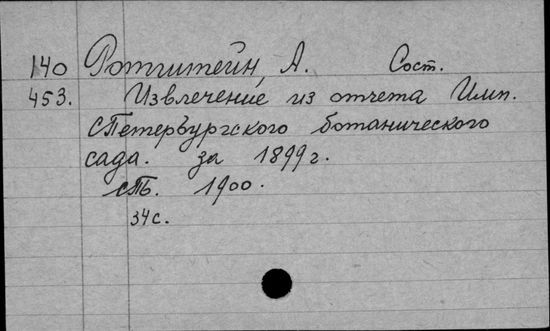 140 Ротштейн, А. Сост.
453. Извлечение из отчета Имп.
СПетербургского ботанического
сада. за 1899 г.
СПб. 1900.
34 с.